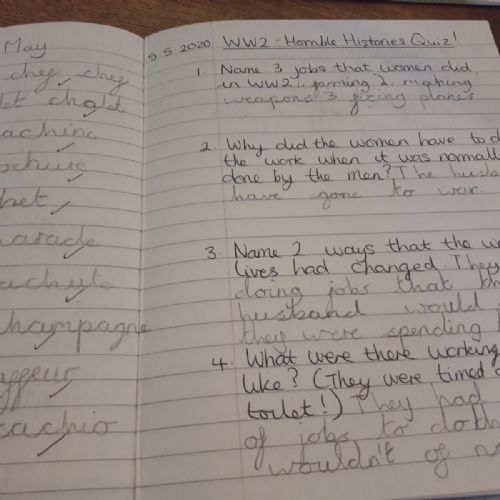 May
chef chef
chalet
machine
brochure
parachute
champagne
chauffeur
pistachio
5.5.2020 WW2 - Horrible Histories Quiz!
1. Name 3 jobs that women did
in WW2? 1. farming 2. making
weapons 3. fixing planes
2. Why did the women have to do
the work when it was normall
done by the men? The husb
have gone to war.
3. Name 2 ways that the wo
lives had changed. They
doing jobs that th
husband would
they were spending
4. What were there working
like? (They were timed
toilet!) They had
of jobs to do th
wouldn't of n